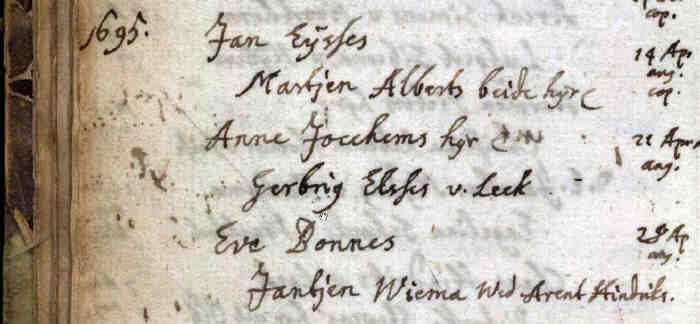 cop.
1695. Jan Eÿsses 14 Ap.
ang.
Martjen Alberts beide hyr cop.
Anne Jocchems hyr & 21 Apr
ang.
Gerbrig Elsses v. Leek
Eve Bonnes 28 Ap
ang.
Jantjen Wiema Wed Arent Hindriks.